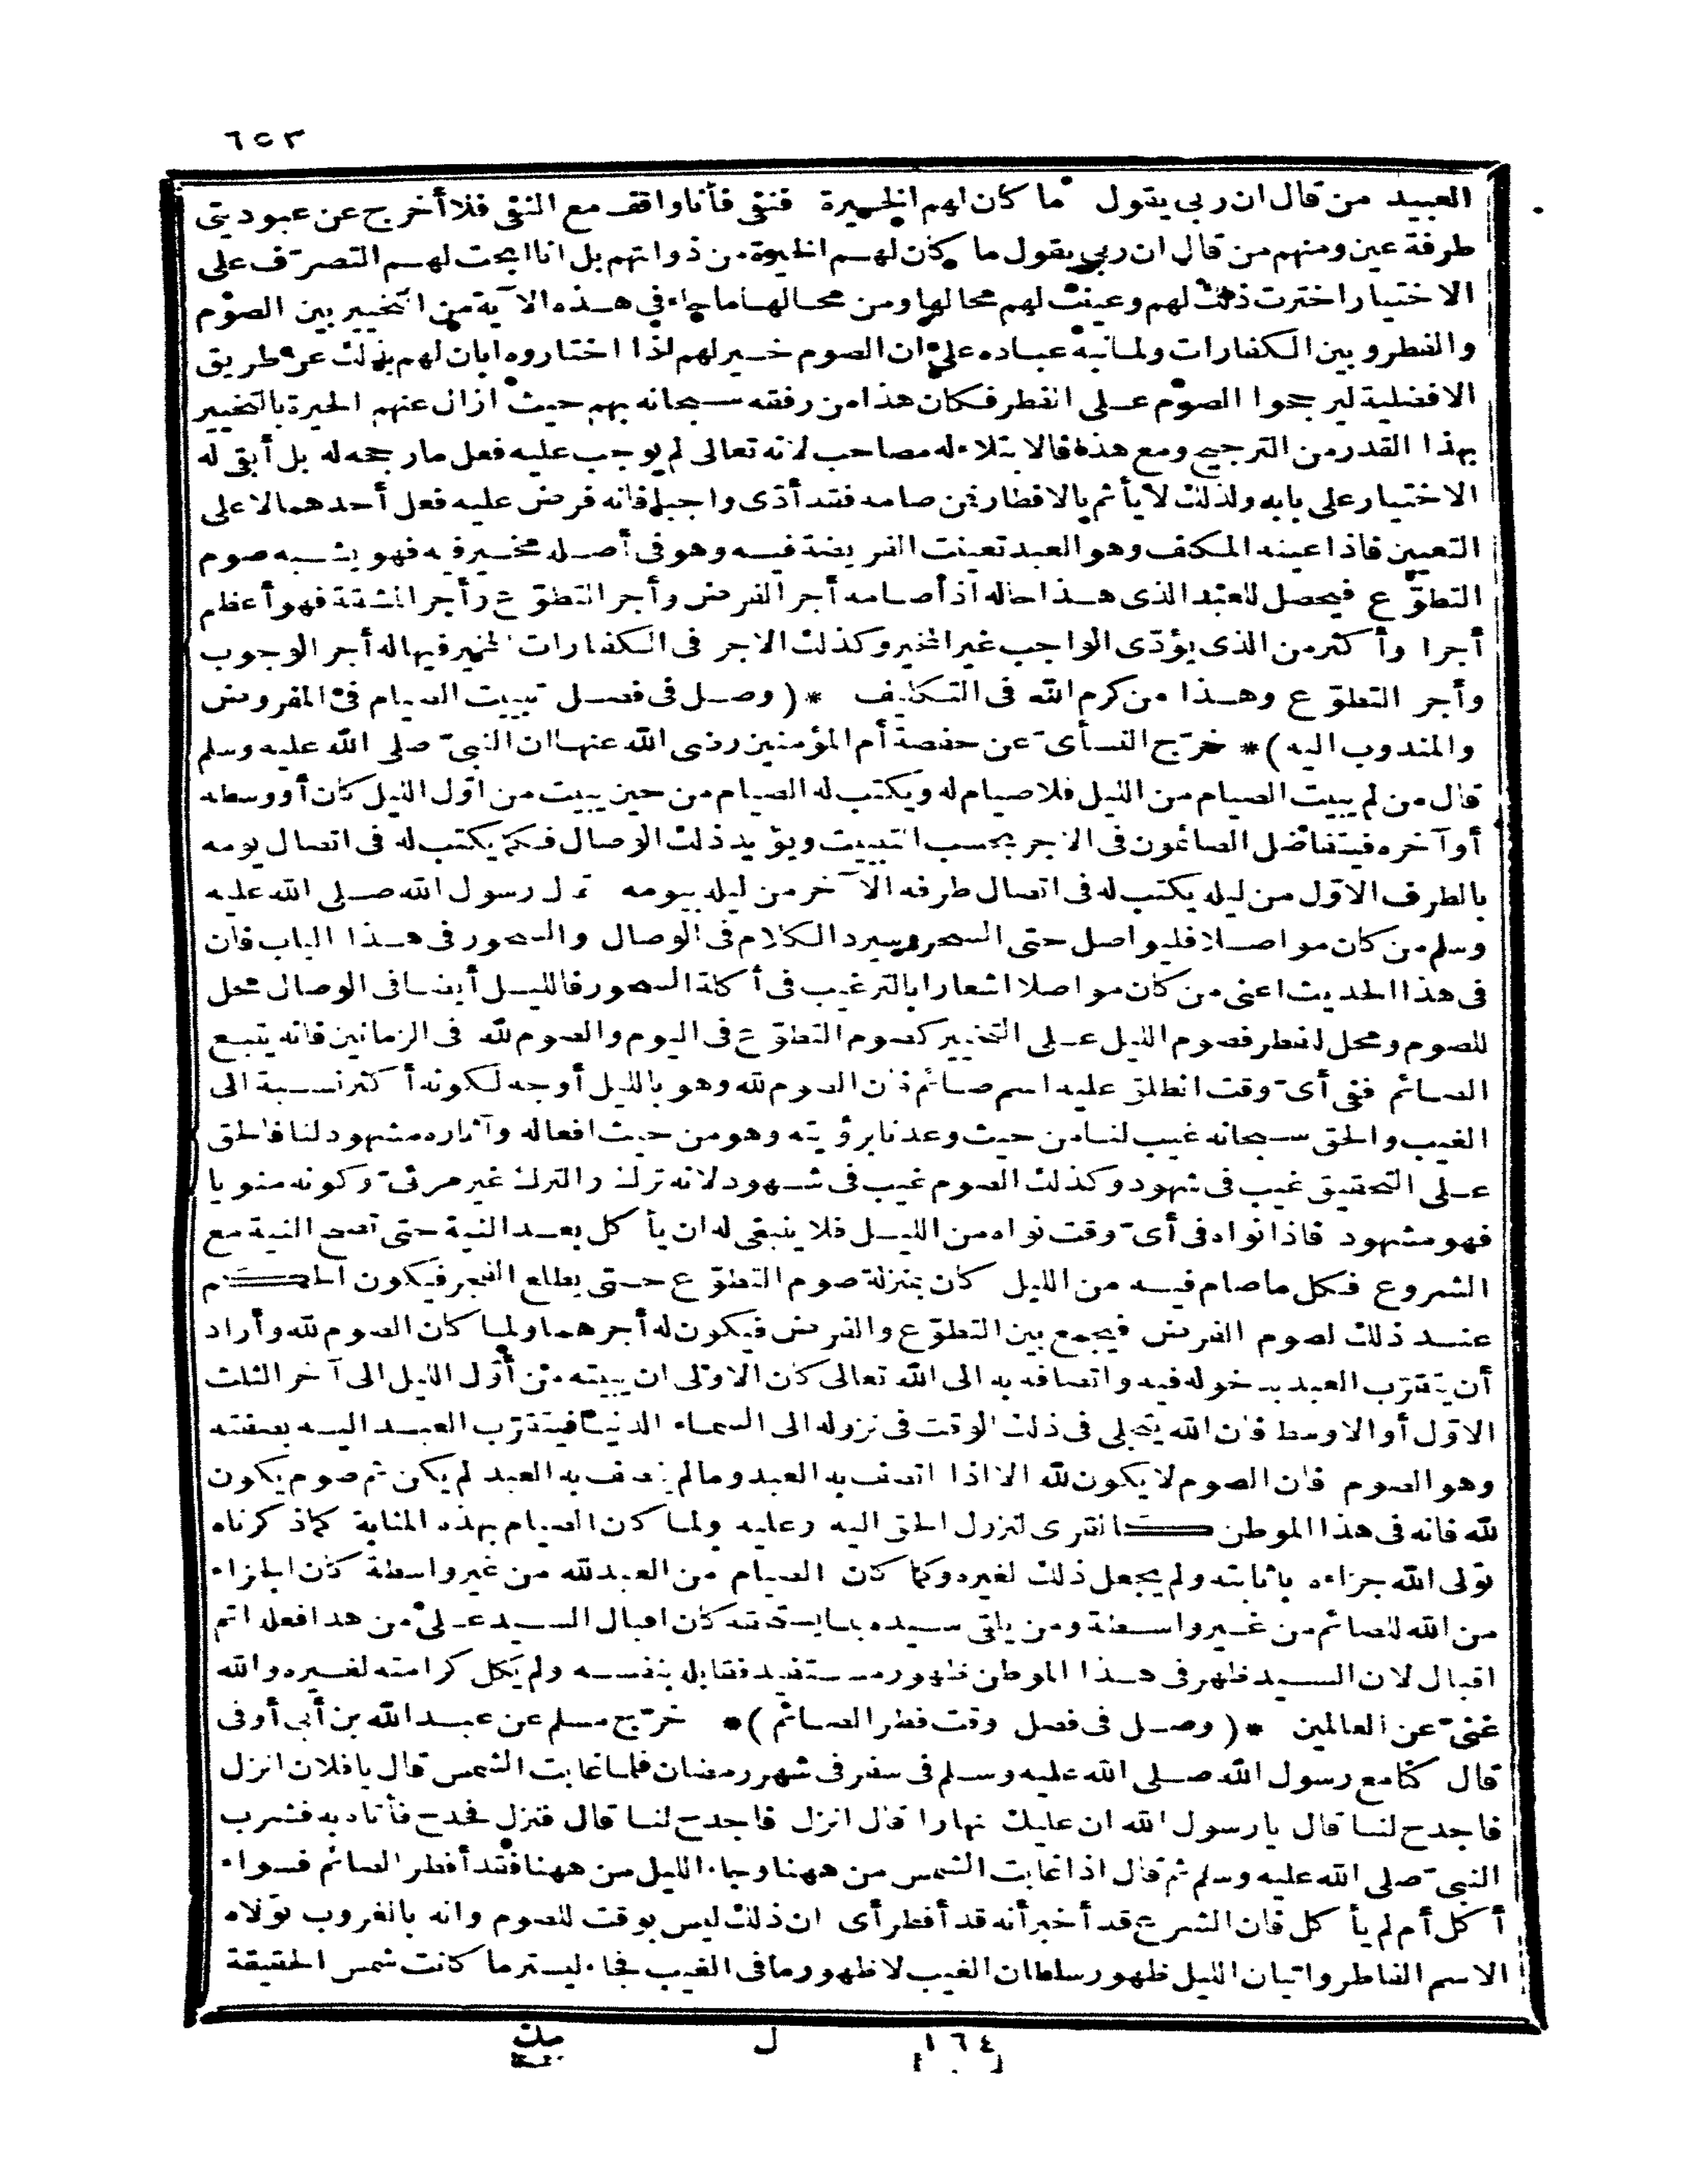 ٦٥٣
العبيد من قال ان ربي يقول ما كان لهم الخيرة فنفى فأنا واقف مع النفى فلا أخرج عن عبوديتى
طرفة عين ومنهم من قال ان ربي يقول ما كان لهم الخيرة من ذواتهم بل انا ابحت لهم التصرّف على
الاختيار اخترت ذلك لهم وعينت لهم محالها ومن محالها ما جاء فى هذه الآية من التخيير بين الصوم
والفطر وبين الكفارات ولما نبه عباده على ان الصوم خير لهم اذا اختاروه ابان لهم بذلك عن طريق
الافضلية ليرجحوا الصوم على الفطر فكان هذا من رفقه سبحانه بهم حيث ازال عنهم الحيرة بالتخيير
بهذا القدر من الترجيح ومع هذا فالابتلاء له مصاحب لانه تعالى لم يوجب عليه فعل ما رجحه له بل أبقى له
الاختيار على بابه ولذلك لا يأثم بالافطار فمن صامه فقد أدّى واجبا فانه فرض عليه فعل أحدهما لا على
التعيين فاذا عينه المكلف وهو العبد تعينت الفريضة فيه وهو فى أصله مخير فيه فهو يشبه صوم
التطوّع فيحصل للعبد الذى هذا حاله اذا صامه أجر الفرض وأجر التطوّع وأجر المشقة فهو أعظم
أجرا وأكثر من الذى يؤدّى الواجب غير المخير وكذلك الاجر فى الكفارات المخير فيها له أجر الوجوب
وأجر التطوّع وهذا من كرم الله فى التكليف *( وصل فى فصل تبييت الصيام فى المفروض
والمندوب اليه )* خرّج النسائى عن حفصة أم المؤمنين رضى الله عنها ان النبىّ صلى الله عليه وسلم
قال من لم يبيت الصيام من الليل فلا صيام له ويكتب له الصيام من حين يبيت من اوّل الليل كان أو وسطه
أو آخره فيتفاضل الصائمون فى الاجر بحسب التبييت ويؤيد ذلك الوصال فكما يكتب له فى اتصال يومه
بالطرف الاوّل من ليله يكتب له فى اتصال طرفه الآخر من ليله بيومه قال رسول الله صلى الله عليه
وسلم من كان مواصلا فليواصل حتى السحر وسيرد الكلام فى الوصال والسحور فى هذا الباب فان
فى هذا الحديث اعنى من كان مواصلا اشعارا بالترغيب فى أكلة السحور فالليل أيضا فى الوصال محل
للصوم ومحل للفطر فصوم الليل على التخيير كصوم التطوّع فى اليوم والصوم لله فى الزمانين فانه يتبع
الصائم ففى أىّ وقت انطلق عليه اسم صائم فان الصوم لله وهو بالليل أوجه لكونه أكثر نسبة الى
الغيب والحق سبحانه غيب لنا من حيث وعدنا برؤيته وهو من حيث افعاله وآثاره مشهود لنا فالحق
على التحقيق غيب فى شهود وكذلك الصوم غيب فى شهود لانه ترك والترك غير مرئىّ وكونه منويا
فهو مشهود فاذا نواه فى أىّ وقت نواه من الليل فلا ينبغى له ان يأكل بعد النية حتى تصح النية مع
الشروع فكل ما صام فيه من الليل كان بمنزلة صوم التطوّع حتى يطلع الفجر فيكون الحكم
عند ذلك لصوم الفرض فيجمع بين التطوّع والفرض فيكون له أجرهما ولما كان الصوم لله وأراد
أن يتقرّب العبد بدخوله فيه واتصافه به الى الله تعالى كان الاولى ان يبيته من أوّل الليل الى آخر الثلث
الاوّل أو الاوسط فان الله يتجلى فى ذلك الوقت فى نزوله الى السماء الدنيا فيتقرّب العبد اليه بصفته
وهو الصوم فان الصوم لا يكون لله الا اذا اتصف به العبد وما لم يتصف به العبد لم يكن ثم صوم يكون
لله فانه فى هذا الموطن كالقرى لنزول الحق اليه وعليه ولما كان الصيام بهذه المثابة كما ذكرناه
تولى الله جزاءه بانابته ولم يجعل ذلك لغيره وكما كان الصيام من العبد لله من غير واسطة كان الجزاء
من الله للصائم من غير واسطة ومن يلقى سيده بما يستحقه كان اقبال السيد على من هذا فعله اتم
اقبال لان السيد ظهر فى هذا الموطن ظهور مستفيد فقابله بنفسه ولم يكل كرامته لغيره والله
غنىّ عن العالمين *( وصل فى فصل وقت فطر الصائم )* خرّج مسلم عن عبد الله بن أبى أوفى
قال كنا مع رسول الله صلى الله عليه وسلم فى سفر فى شهر رمضان فلما غابت الشمس قال يا فلان انزل
فاجدح لنا قال يا رسول الله ان عليك نهارا قال انزل فاجدح لنا قال فنزل فجدح فأتاه به فشرب
النبىّ صلى الله عليه وسلم ثم قال اذا غابت الشمس من ههنا وجاء الليل من ههنا فقد أفطر الصائم فسواء
أكل أم لم يأكل فان الشرع قد أخبر أنه قد أفطر أى ان ذلك ليس بوقت للصوم وانه بالغروب تولاه
الاسم الفاطر واتيان الليل ظهور سلطان الغيب لا ظهور ما فى الغيب فجاء ليستر ما كانت شمس الحقيقة
١٦٤ ل مك